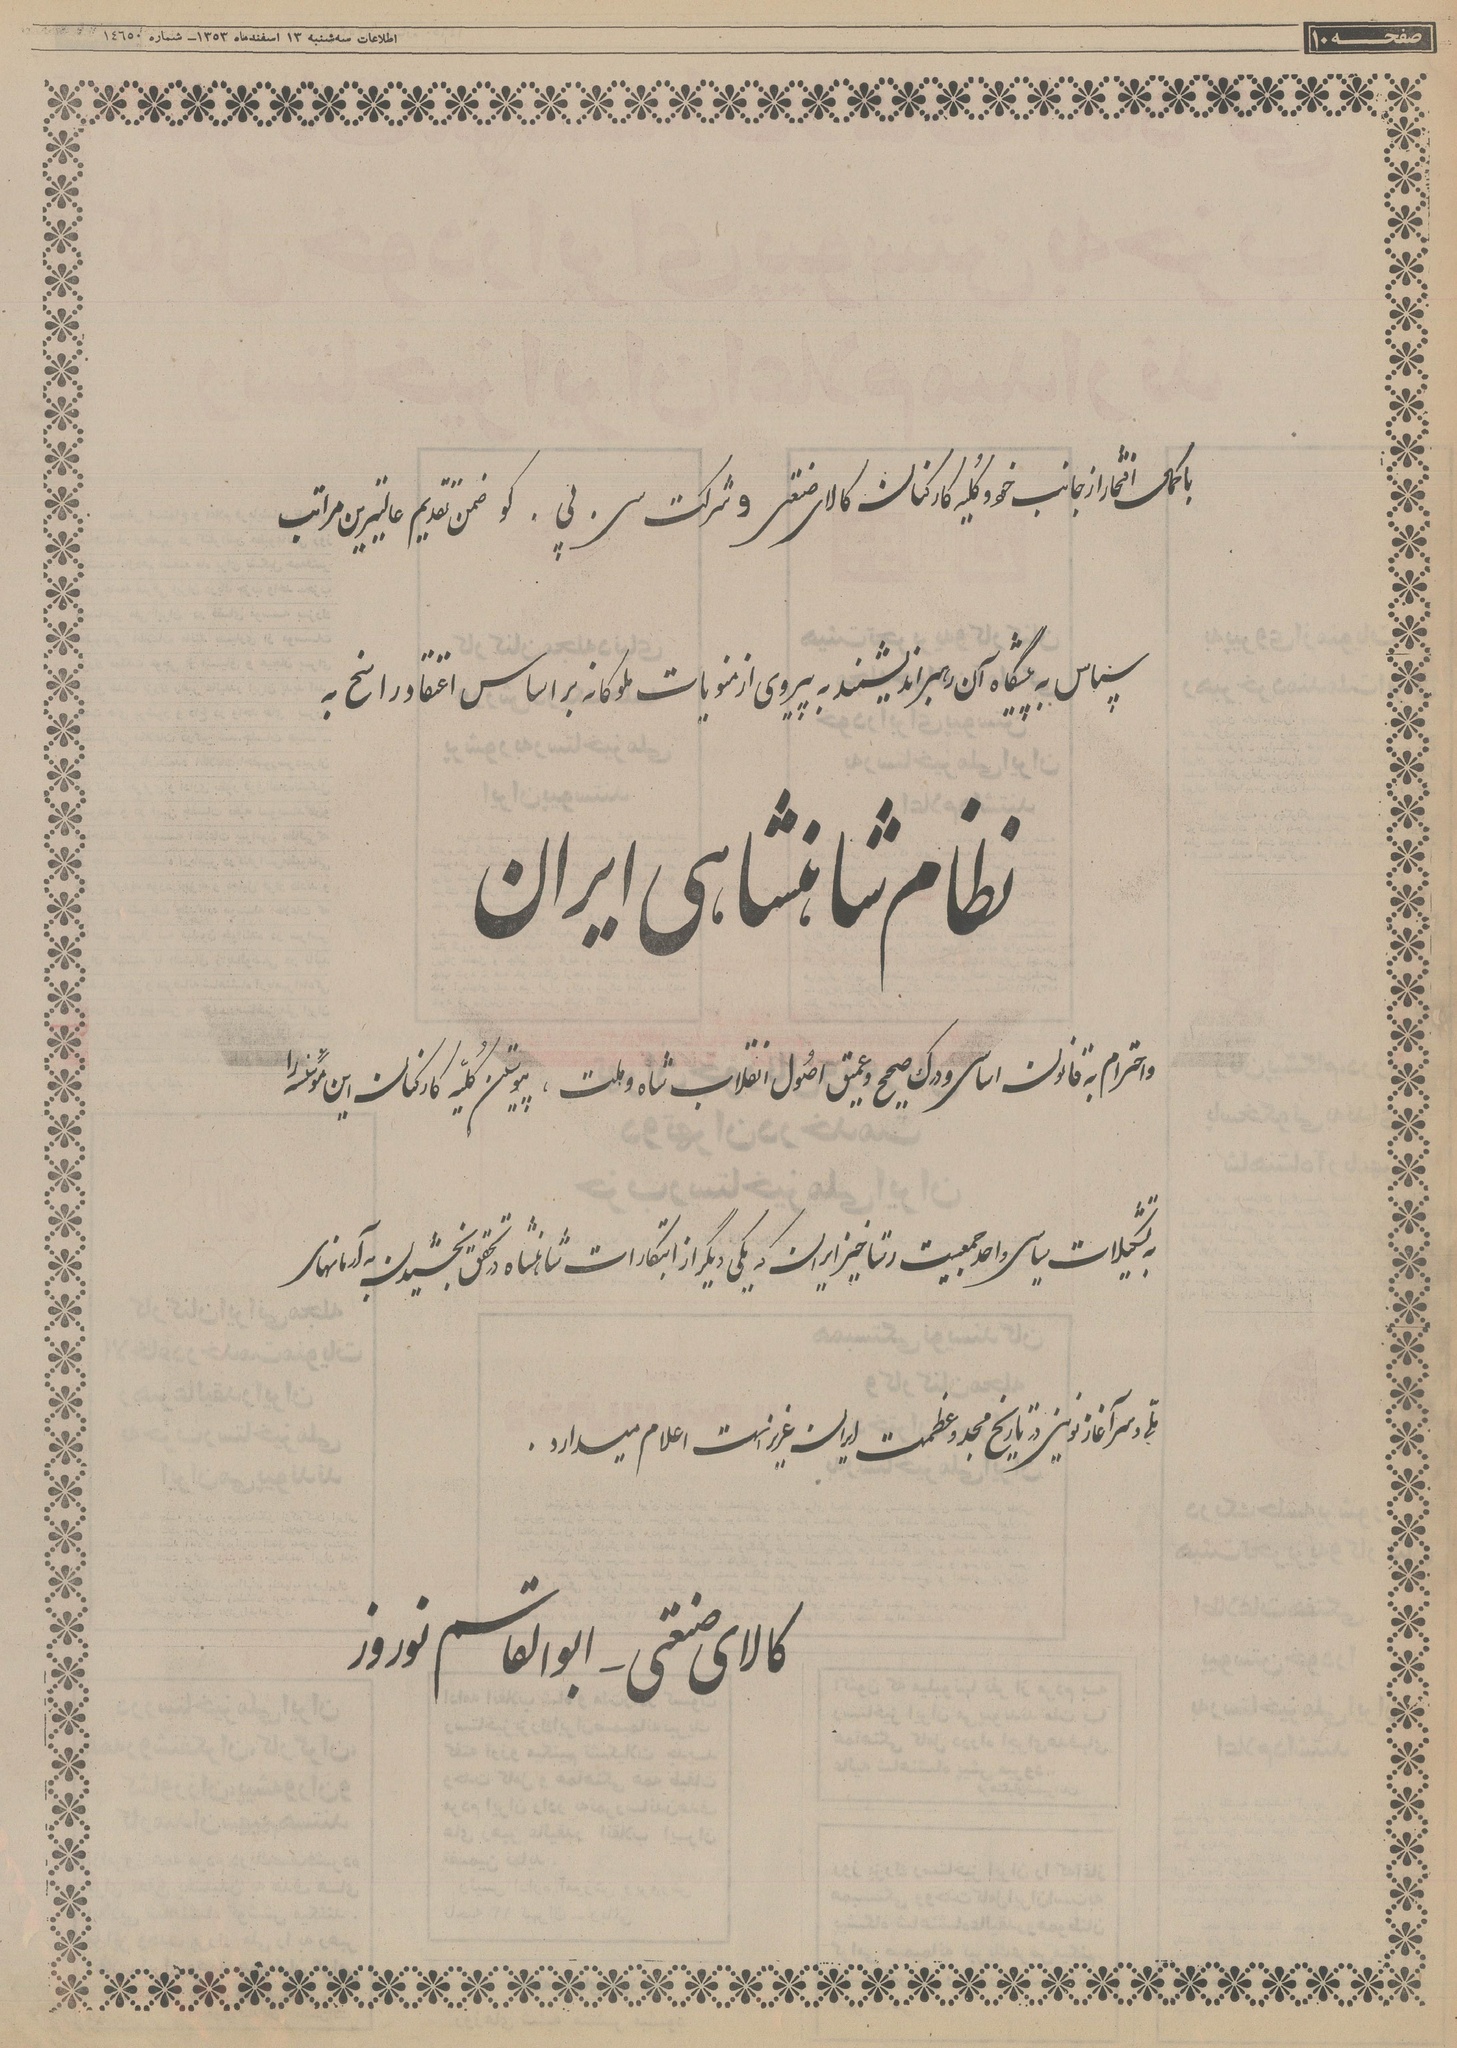 صفحه ۱۰
اطلاعات سه‌شنبه ۱۳ اسفندماه ۱۳۵۳ـ شماره ۱۴۶۵۰
با کمال افتخار از جانب خود و کلیه کارکنان کالای صنعتی و شرکت سی . پی . کو ضمن تقدیم عالیترین مراتب
سپاس به پیشگاه آن رهبر اندیشمند به پیروی از منویات ملوکانه بر اساس اعتقاد راسخ به
نظام شاهنشاهی ایران
و احترام به قانون اساسی و درک صحیح و عمیق اصول انقلاب شاه و ملت ، پیوستن کلیه کارکنان این مؤسسه را
به تشکیلات سیاسی واحد جمعیت رستاخیز ایران که یکی دیگر از ابتکارات شاهنشاه در تحقق بخشیدن به آرمانهای
ملی و سرآغاز نوینی در تاریخ مجد و عظمت ایران عزیز است اعلام میدارد .
کالای صنعتی ـ ابوالقاسم نوروز